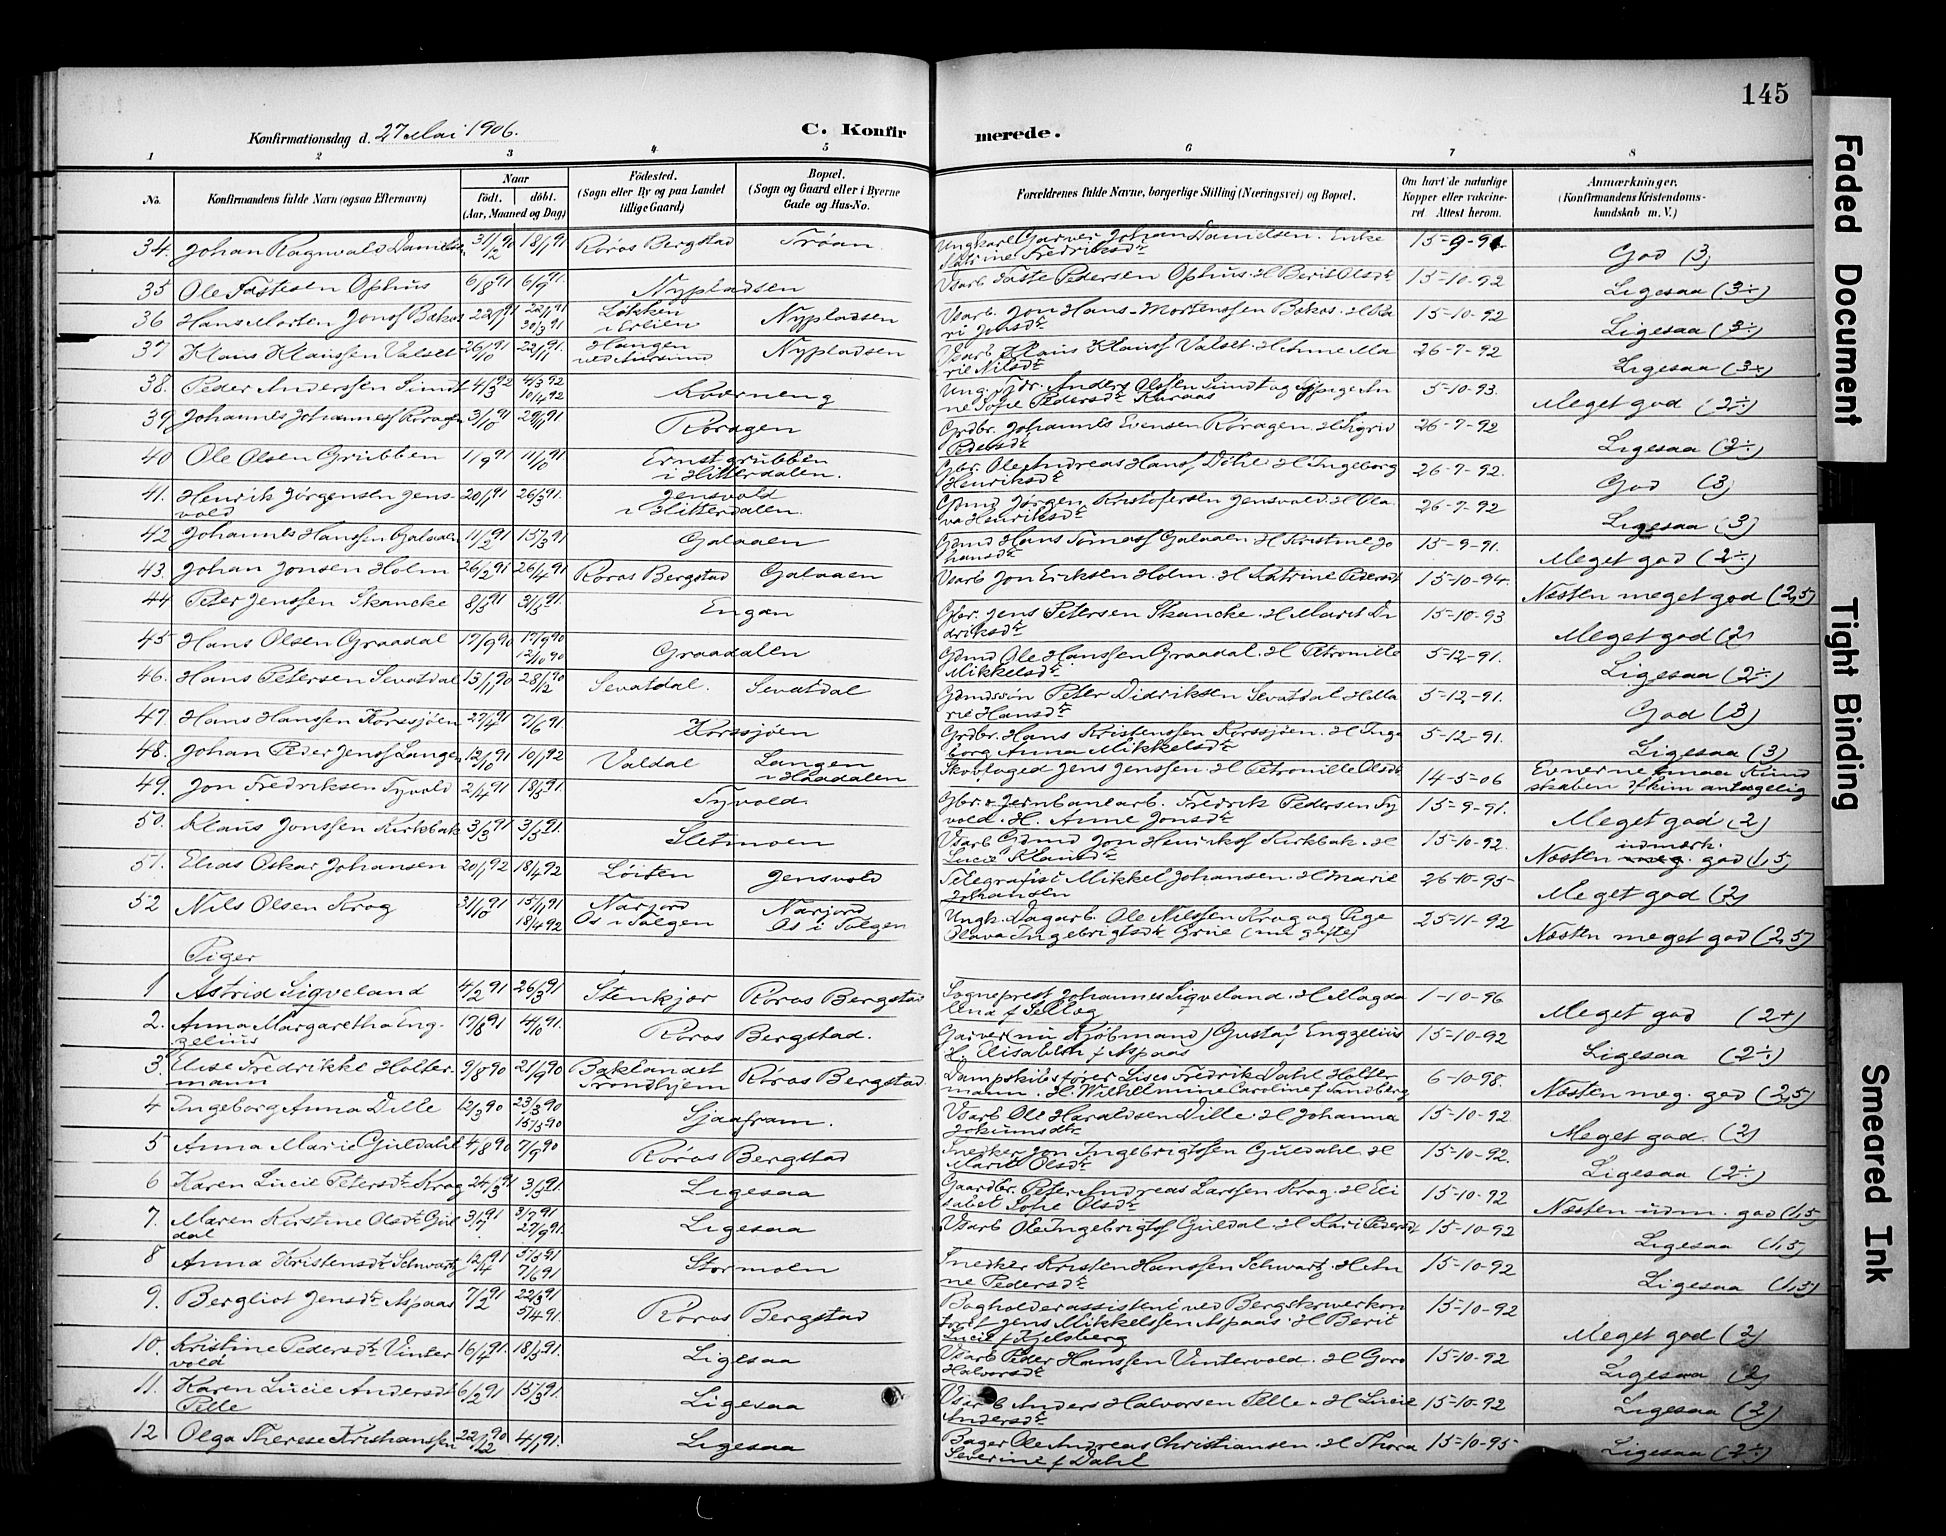 145
Konfirmationsdag d. 27 Mai 1906.
C. Konfirmerede.
1 2 3 4 5 6 7 8
No. Konfirmandens fulde Navn (ogsaa Efternavn) Naar født. døbt. (Aar, Maaned og Dag) Fødested. (Sogn eller By og paa Landet tillige Gaard) Bopæl. (Sogn og Gaard eller i Byerne Gade og Hus-No. Forældrenes fulde Navne, borgerlige Stilling (Næringsvei) og Bopæl. Om havt de naturlige Kopper eller vakcineret. Attest herom. Anmærkninger. (Konfirmandens Kristendomskundskab m. V.)
34. Johan Ragnvald Danielsen 31/12 90 18/1 91 Røros Bergstad Trøan Ungkarl Garver Johan Danielsen. Enke Katrine Fredriksdtr 15-9-91. God (3)
35 Ole Fastesen Ophus 6/8 91 6/9 91. Nypladsen Varb Faste Pedersen Ophus. H Berit Olsdtr 15-10-92 Ligesaa (3÷)
36 Hans Morten Jonsf Bakos 22/1 91 22/1 91 30/3 91 Løkken i Erlien Nypladsen Varb. Jon Hans-Mortenssen Bakos. H Kari Jonsdtr 15-10-92 Ligesaa (3÷)
37 Klaus Klaussen Valset 26/10 91 22/11 91. Haugen ved Aursund Nypladsen Varb Klaus Klausf Valset. H Anne Marie Nilsdtr 26-7-92 Ligesaa (3+)
38. Peder Anderssen Sundt 4/3 92 4/3 92 10/4 92 Kværneng Ung. Tjdr. Anders Olssen Sundt og Pige Anne Sofie Pedersdtr Kuraas 5-10-93. Meget god (2÷)
39 Johannes Johannesf Røragen 3/10 91 29/11 91 Røragen Grdbr. Johannes Evensen Røragen. H Sigrid Pedersdtr 26-7-92 Ligesaa (2÷)
40 Ole Olsen Grubben 1/9 91 11/10 91 Ernstgrubben i Hitterdalen. Gbr. Ole Andreas Hansf Döhl. H Ingeborg Henriksdtr 26-7-92. God (3)
41. Henrik Jørgensen Jensvold 20/1 91 26/3 91. Jensvold i Hitterdalen. Gdmd Jørgen Kristofersen Jensvold. H Olava Henriksdtr 26-7-92 Ligesaa (3)
42 Johannes Hanssen Galaaen 11/2 91 15/3 91 Galaaen Gdmd Hans Tomasf Galaaen H Kristine Johansdtr 15-9-91. Meget god (2÷)
43. Johan Jonsen Holm 26/2 91 26/4 91 Røros Bergstad Galaaen Varb Jon Eriksen Holm. H Katrine Pedersdtr 15-10-94. Næsten meget god (2,5)
44 Peter Jenssen Skancke 8/3 91 31/5 91. Engan Gbr. Jens Petersen Skancke. H Marit Didriksdtr 15-10-93 Meget god (2)
45 Hans Olsen Graadal 17/9 90 17/9 90 12/10 90 Graadalen Gdmd Ole Hanssen Graadal. H Petronille Mikkelsdtr 5-12-91. Ligesaa (2÷)
46. Hans Petersen Sevatdal 13/11 90 28/12 90 Sevatdal. Sevatdal Gdmdssøn Peter Didriksen Sevatdal. H Marie Hansdtr 5-12-91. God (3)
47. Hans Hanssen Korssjøen 27/4 91 7/6 91. Korssjøen Grdbr. Hans Kristenssen Korssjøen. H Ingeborg Anna Mikkelsdtr 5-12-91. Ligesaa (3)
48. Johan Peder Jensf Langen 12/10 91 10/1 92 Valdal Langen i Haadalen Skovfoged Jens Jenssen. H Petronille Olsdtr 14-5-06 Evnerne smaa Kundskaben
49. Jon Fredriksen Tyvold 2/4 91 18/5 91. Tyvold Gbr. & Jernbanearb. Fredrik Pedersen Tyvold. H. Anne Jonsdtr 15-9-91. Meget god (2)
50. Klaus Jonssen Kirkbak 3/3 91 3/5 91. Sletmoen Varb Gdmd Jon Henriksf Kirkbak. H Lucie Klausdtr 15-10-92. Næsten udmærk. god (1,5)
51. Elias Oskar Johansen 20/1 92 18/4 92 Løiten Jensvold Telegrafist Mikkel Johansen. H Marie Johansen 26-10-95 Meget god (2)
52 Nils Olsen Krog 31/10 91 15/11 91 18/4 92 Narjord Os i Tolgen Narjord Os i Tolgen Ungk. Dagarb. Ole Nilssen Krog og Pige Olava Ingebrigtsdtr Grue (nu gifte) 25-11-92 Næsten meget god (2,5)
Piger
1 Astrid Sigveland 4/2 91 26/3 91 Stenkjær Røros Bergstad Sogneprest Johannes Sigveland. H Magdalena f Selläg 1-10-96 Meget god (2+)
2. Anna Margaretha Engzelius 17/8 91 4/10 91. Røros Bergstad. Garver (nu Kjøbmand) Gustaf Engzelius H. Elisabeth f Aspaas 15-10-92 Ligesaa (2÷)
3. Elise Fredrikke Holtermann 9/8 90 21/9 90 Baklandet Trondhjem Røros Bergstad. Dampskibsfører Lises Fredrik Dahl Holtermann. H. Wilhelmine Caroline f Sandberg 6-10-98. Næsten meg. god (2,5)
4 Ingeborg Anna Dille 12/3 90 23/3 90 15/3 90 Sjaafram. Varb Ole Haraldsen Dille. H Johanna Jokumsdtr 15-10-92 Meget god. (2)
5 Anna Marie Guldahl 4/8 90 7/9 90 Røros Bergstad Snedker Jon Ingebrigtssen Guldahl. H Marit Olsdtr 15-10-92. Ligesaa (2÷)
6 Karen Lucie Petersdtr Krog 24/3 91 3/5 91. Ligesaa Gaardbr. Peter Andreas Larssen Krog. H Elisabet Sofie Olsdtr 15-10-92 Næsten udm. god (1,5)
7. Maren Kirstine Olsdtr Guldal 3/7 91 3/7 91 27/9 91. Ligesaa Varb Ole Ingebrigtsf Guldal. H Kari Pedersdtr 15-10-92 Ligesaa (1,5)
8 Anna Kristensdtr Schwartz 12/4 91 5/5 91 7/6 91 Stormoen Snedker Kristen Hanssen Schwartz. H Anne Pedersdtr 15-10-92 Ligesaa (1,5)
9. Bergliot Jensdtr Aspaas 7/2 91 22/3 91 5/4 91. Røros Bergstad Bogholderassistent ved Bergskriverkontoret Jens Mikkelssen Aspaas. H Berit Lucie f Kjelsberg 15-10-92 Meget god (2)
10. Kristine Pedersdtr Vintervold 16/4 91. 18/5 91. Ligesaa Varb Peder Hanssen Vintervold. H Goro Halvorsdtr 15-10-92 Ligesaa (2)
11. Karen Lucie Andersdtr Pelle 6/2 91 15/3 91. Ligesaa Varb Anders Halvorsen Pelle. H Lucie Andersdtr 15-10-92 Ligesaa (2)
12 Olga Therese Kristianssen 22/12 90 4/1 91. Ligesaa Bager Ole Andreas Christiansen. H Thora Severine f Dahl 15-10-95 Ligesaa (2÷)
Faded Document
Tight Binding
Smeared Ink